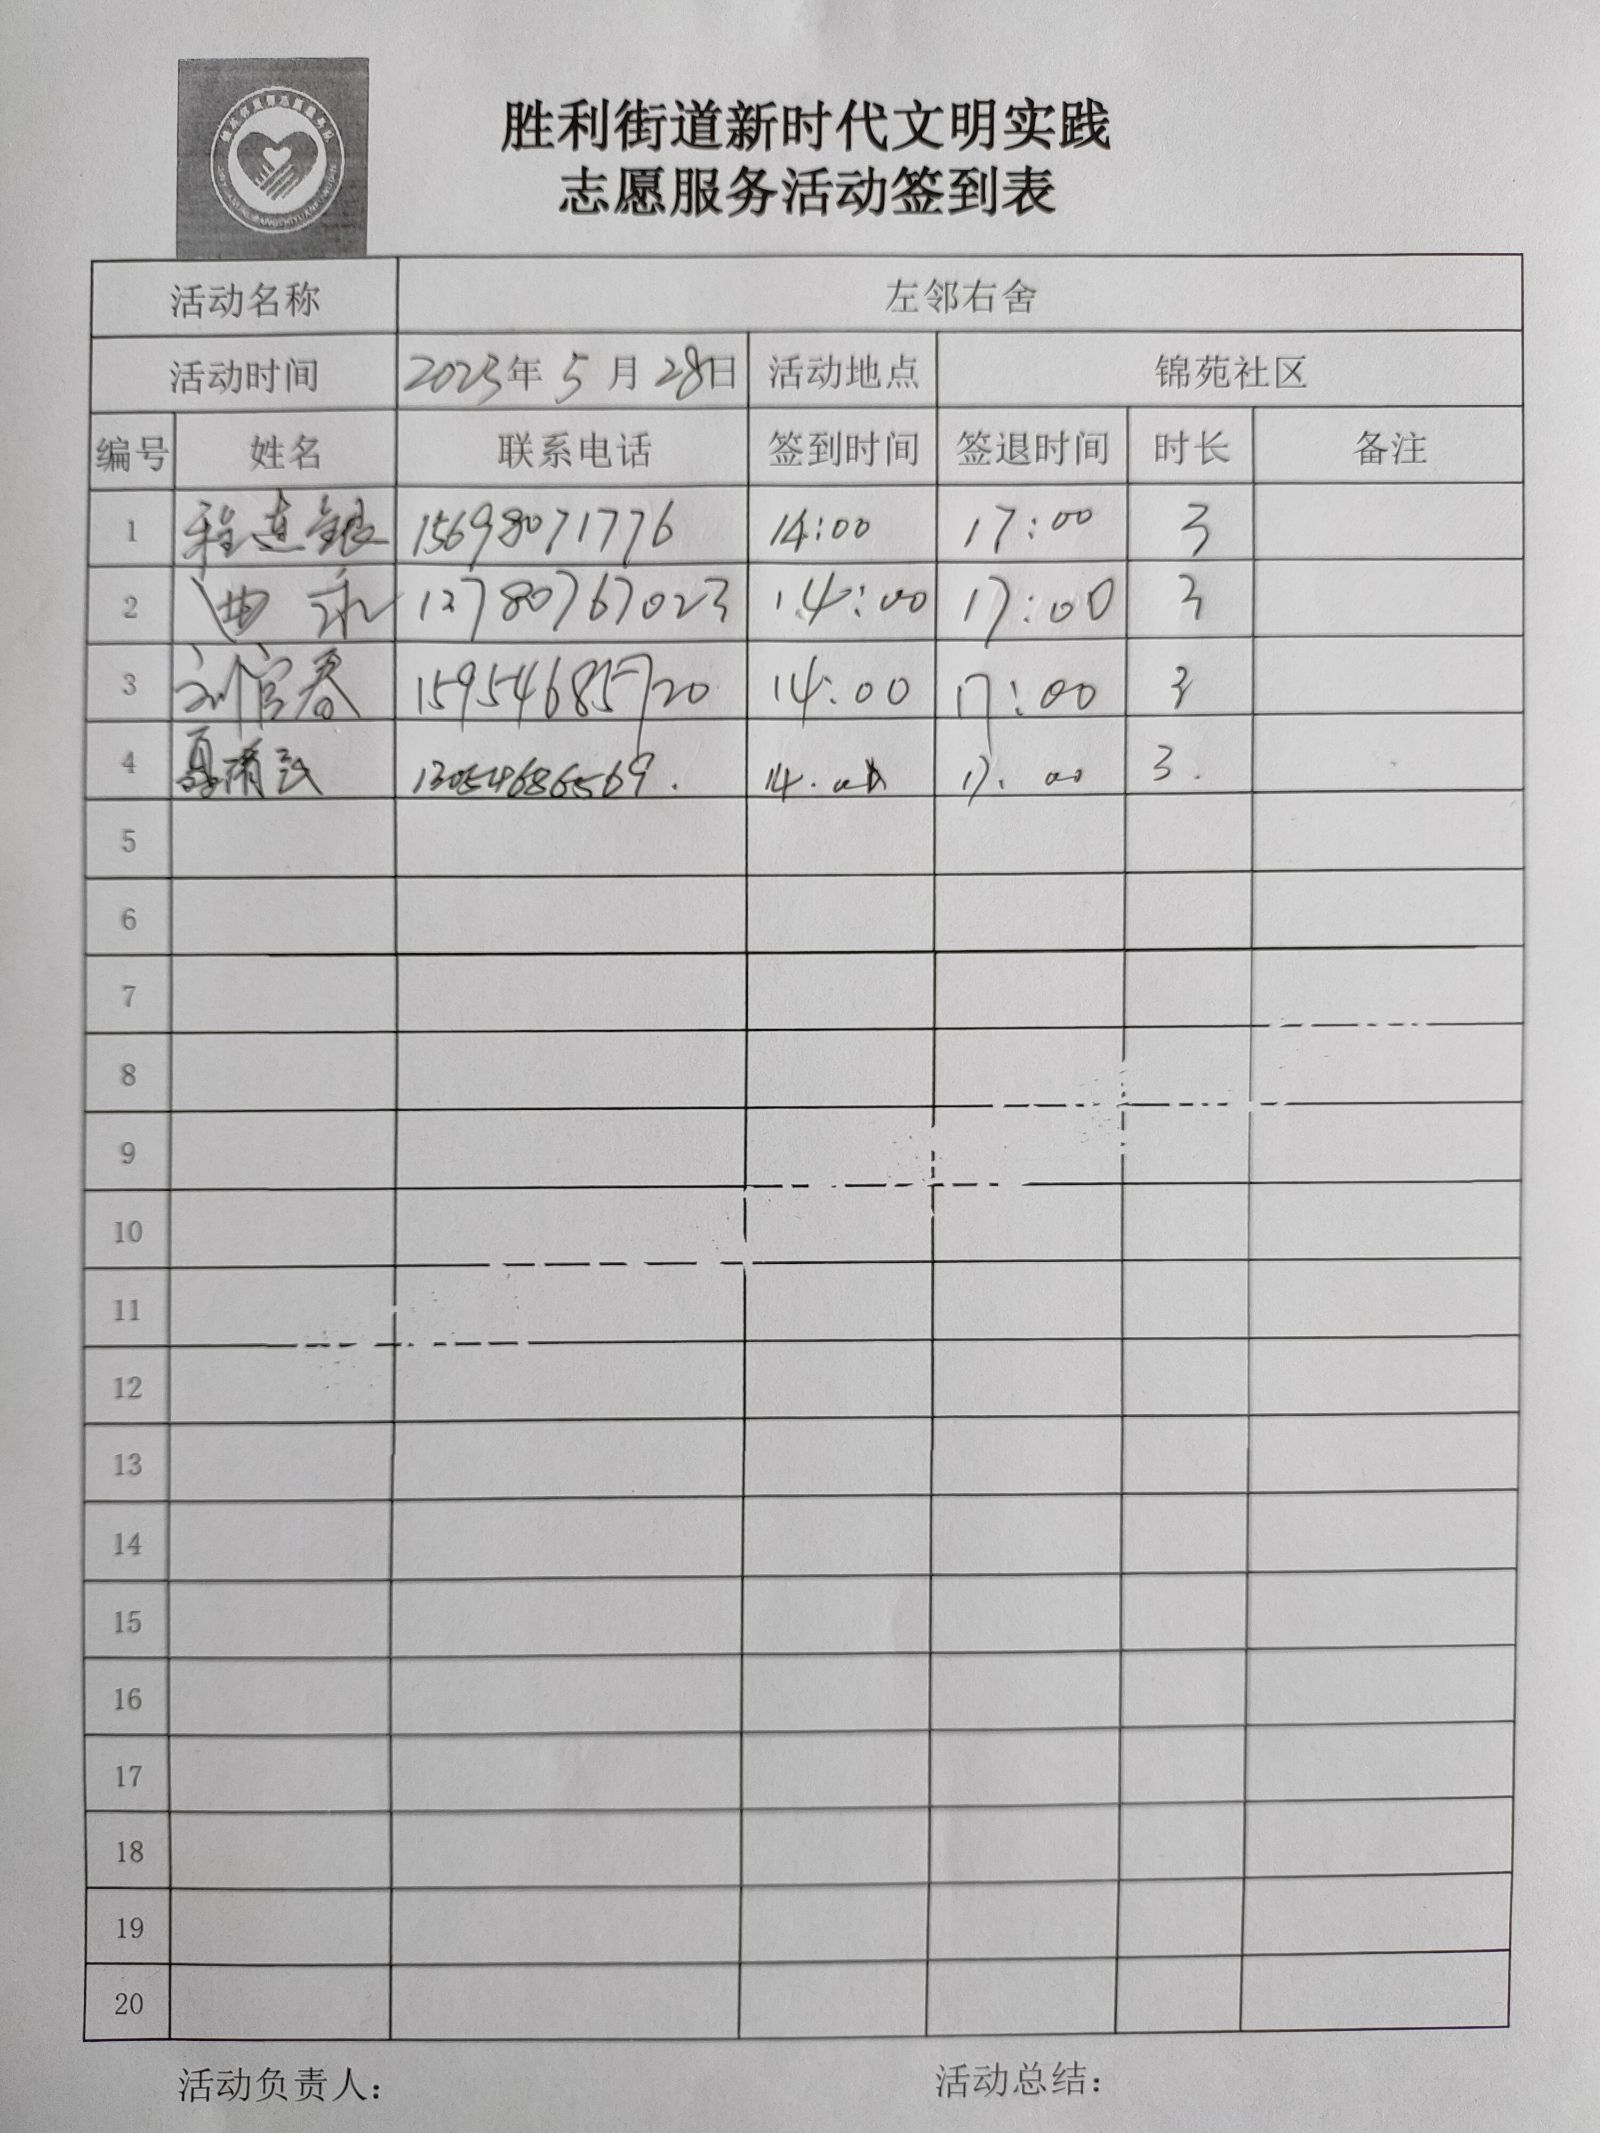 胜利街道新时代文明实践
志愿服务活动签到表
活动名称 左邻右舍
活动时间 2023年 5 月 28日 活动地点 锦苑社区
编号 姓名 联系电话 签到时间 签退时间 时长 备注
1 程连银 15698071776 14:00 17:00 3
2 12780767023 14:00 17:00 3
3 刘官春 15954685720 14:00 17:00 3
4 13054686569. 14.00 17.00 3.
5
6
7
8
9
10
11
12
13
14
15
16
17
18
19
20
活动负责人: 活动总结: